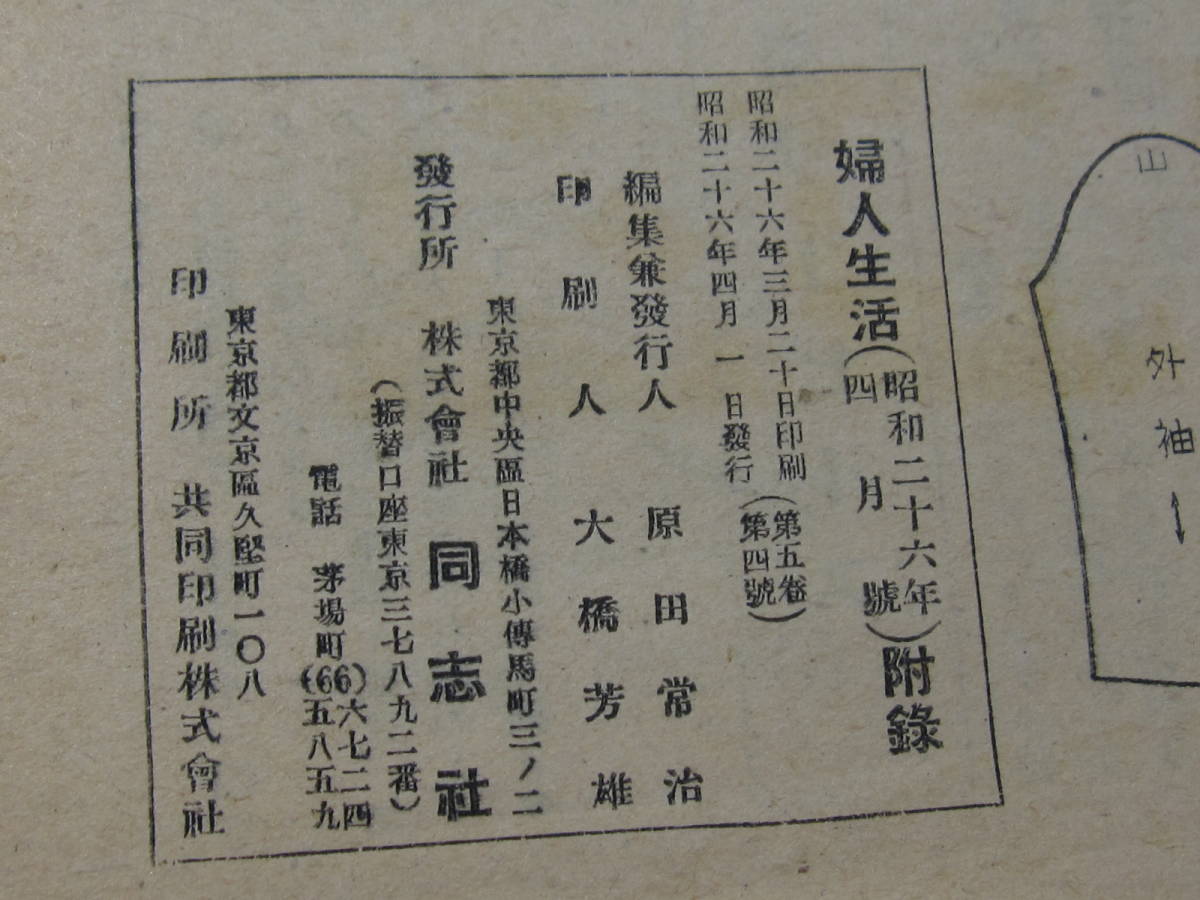 婦人生活(昭和二十六年四月號)附錄
昭和二十六年三月二十日印刷
昭和二十六年四月一日發行
(第五卷第四號)
編集兼發行人 原田常治
印刷人 大橋芳雄
東京都中央區日本橋小傳馬町三ノ二
發行所 株式會社 同志社
(振替口座東京三七八九二番)
電話 茅場町(66)六七二四
(66)五八五九
東京都文京區久堅町一〇八
印刷所 共同印刷株式會社
山
外袖